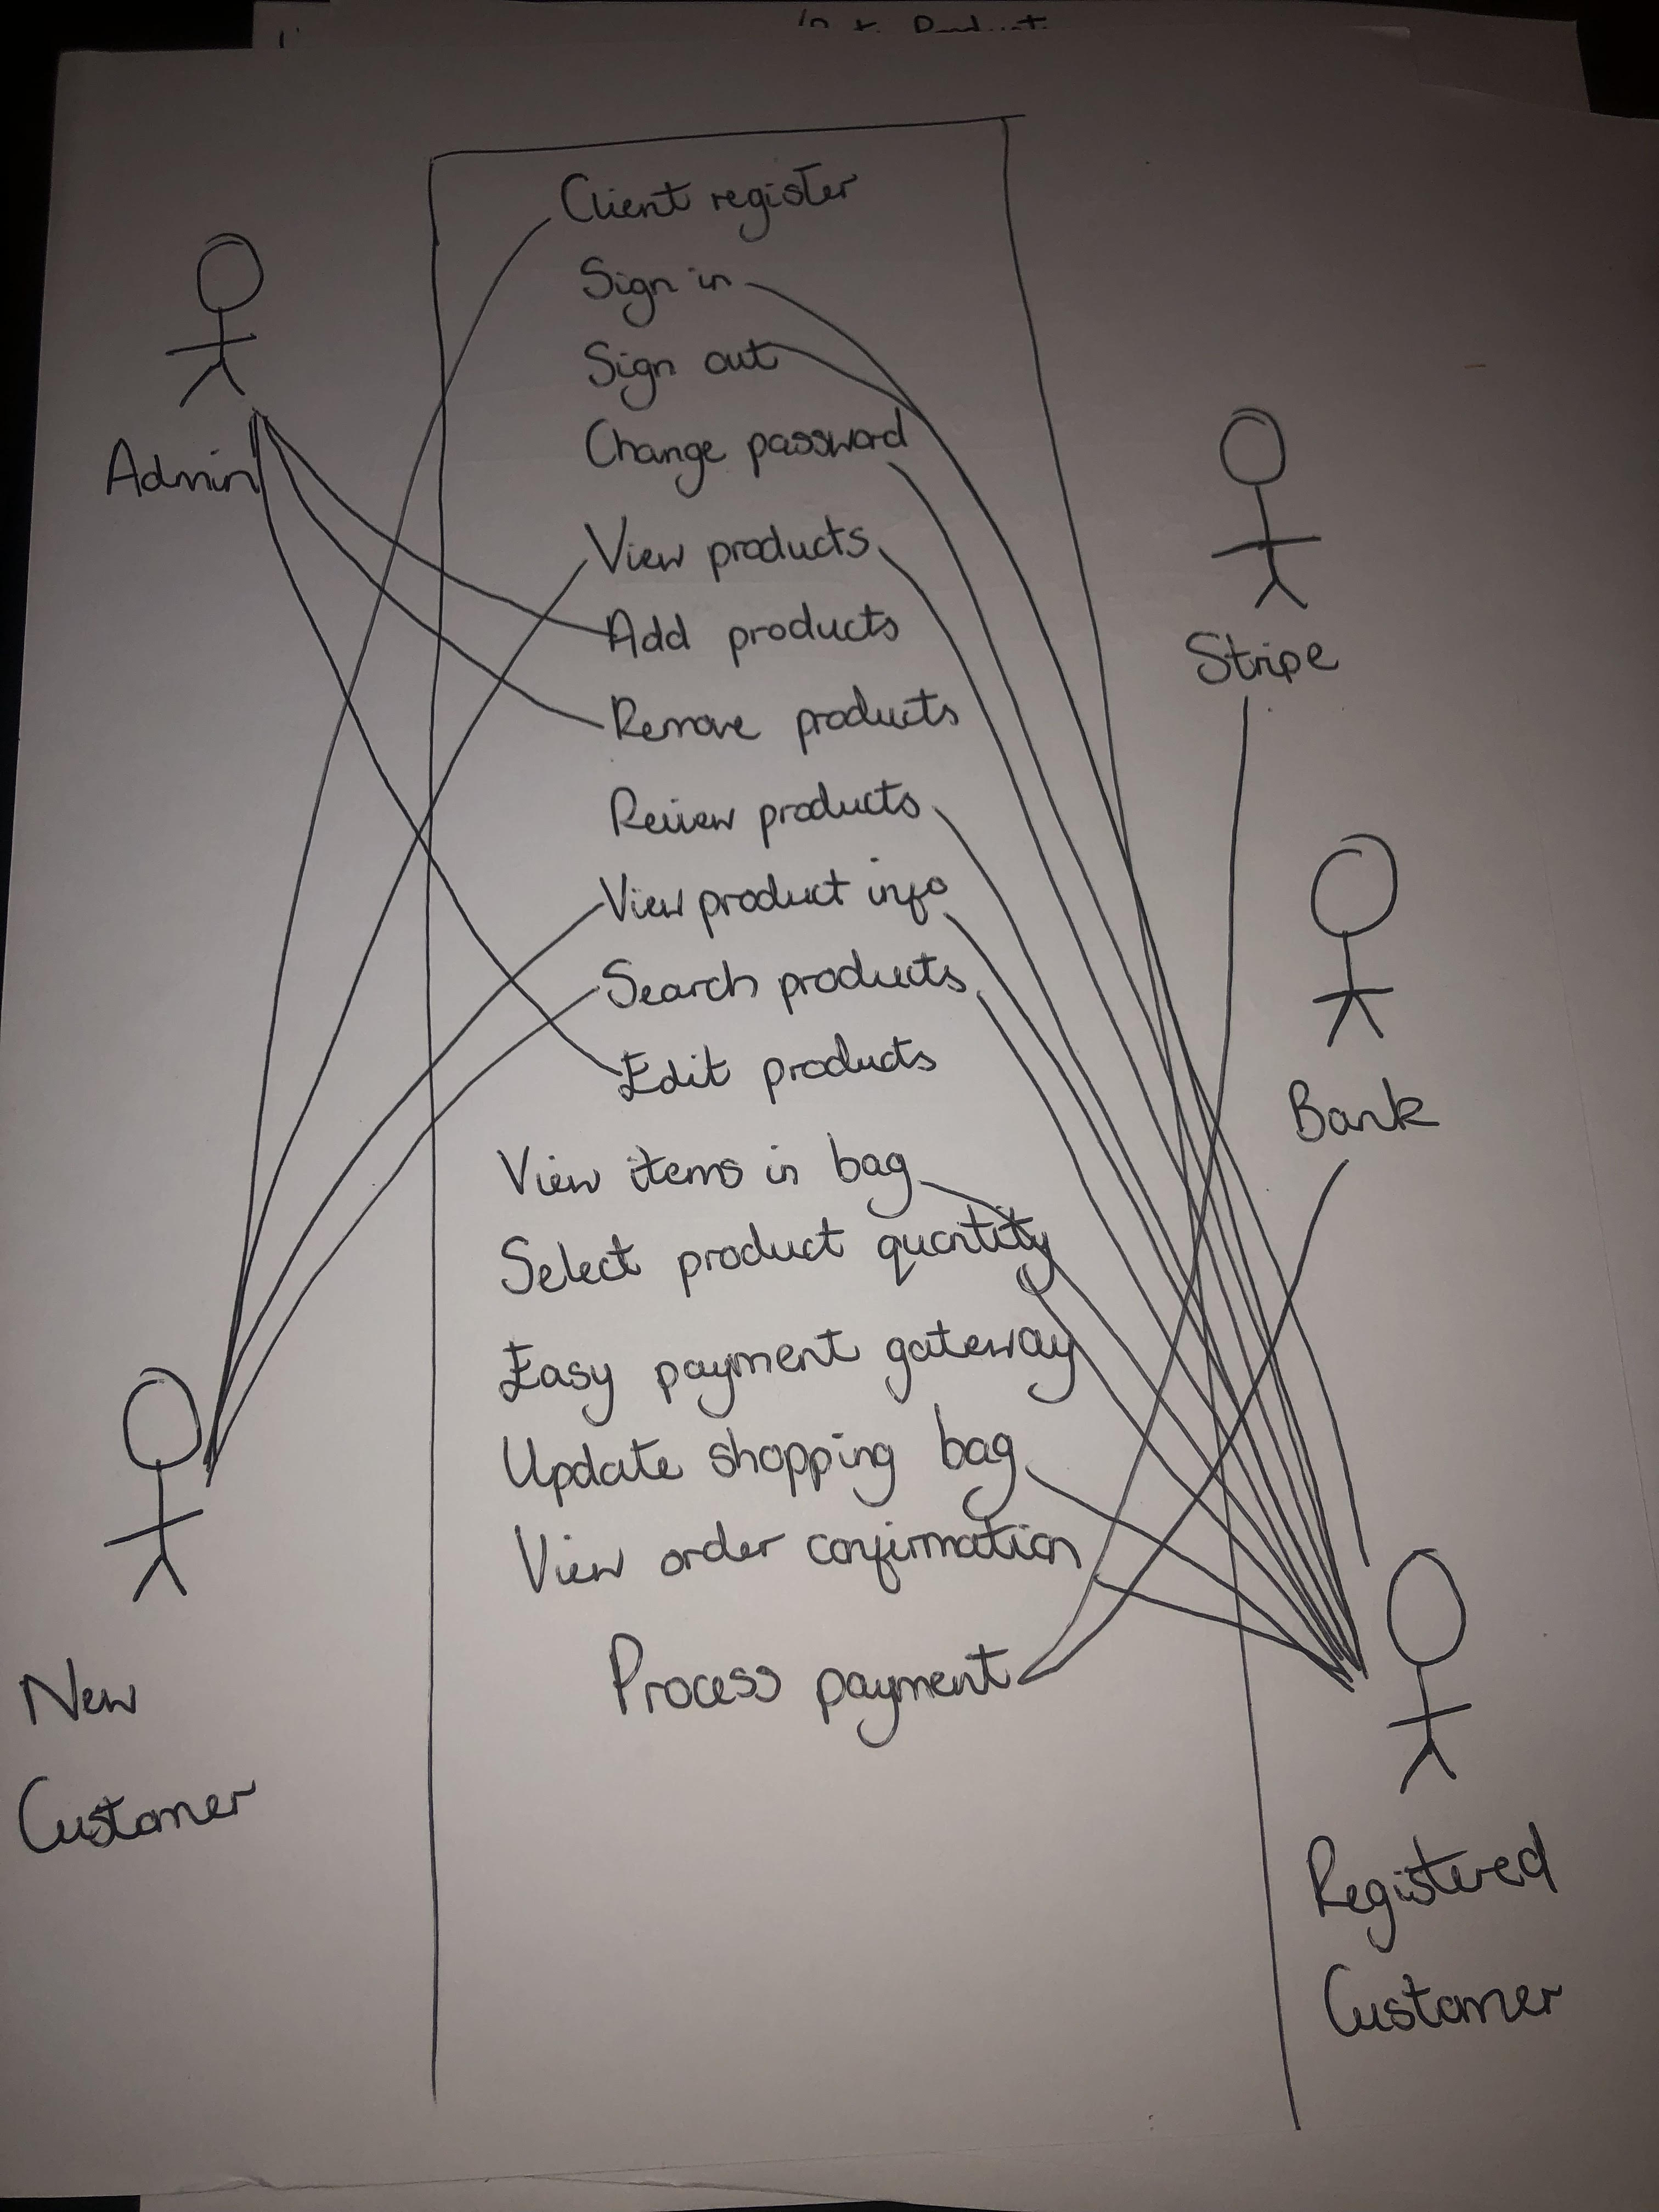 Client register
Sign in
Sign out
Change password
Admin
View products
Add products
Stripe
Remove products
Review products
View product info
Search products
Edit products
Bank
View items in bag
Select product quantity
Easy payment gateway
Update shopping bag
View order confirmation
Process payment
New
Customer
Registered
Customer